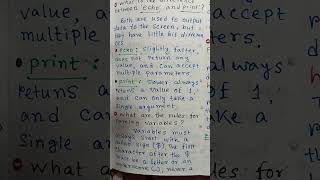 what is the difference
between "echo" and "print"?
Both are used to output
data to the screen, but
have little bit differen
ces
echo: Slightly faster,
does not return any
value, and can accept
multiple parameters
print: Slower, always
retuns a value of 1,
and can only take a
single argument.
what are the rules for
naming variables?
Variables must
always start with a
sign ($). The first
character after the $
must be a letter or an
underscore (_), never a